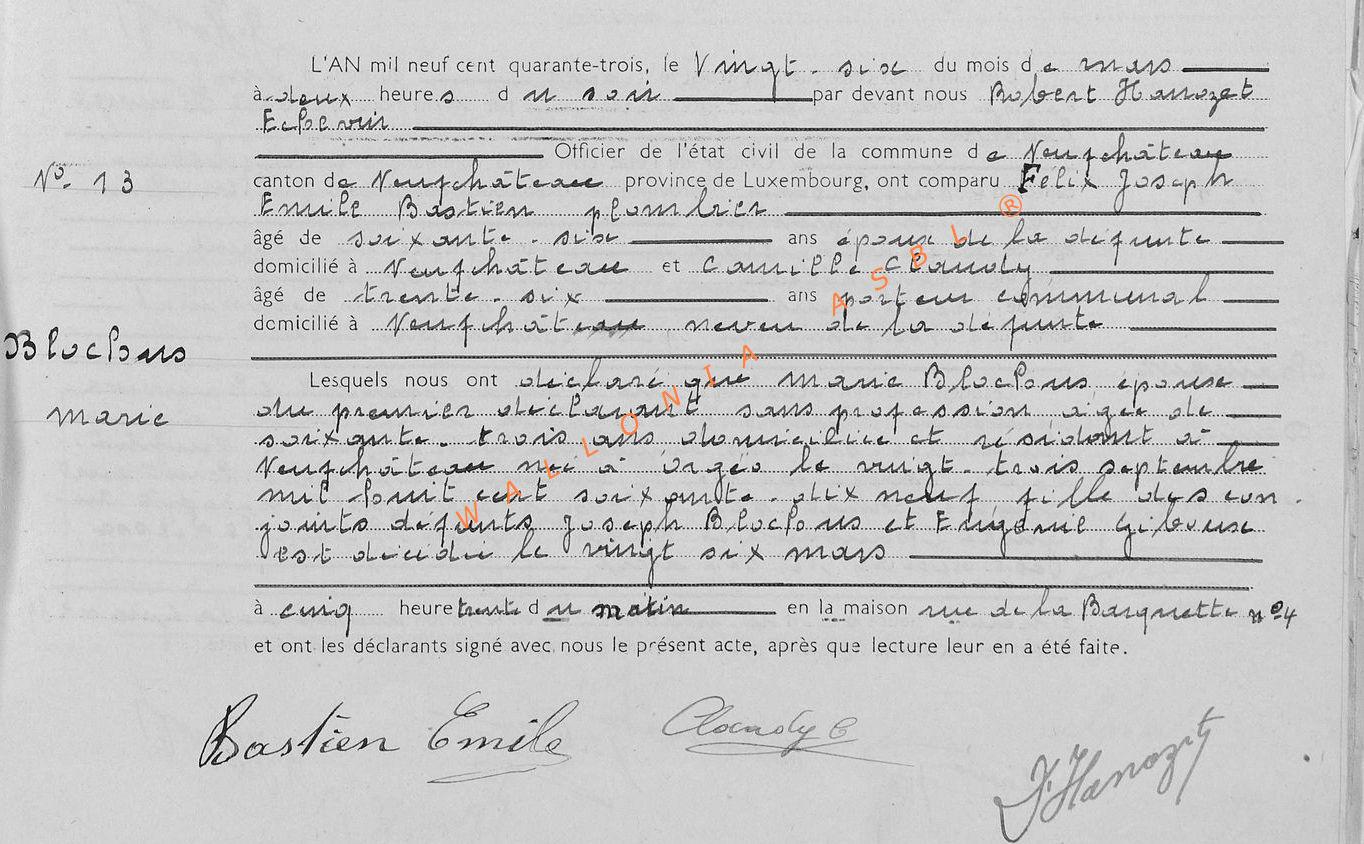 L'AN mil neuf cent quarante-trois, le Vingt-six du mois de mars
à deux heures du soir par devant nous Robert Hanozet
Echevin
Officier de l'état civil de la commune de Neufchâteau
No. 13
canton de Neufchâteau province de Luxembourg, ont comparu Félix Joseph
Emile Bastien plombier
âgé de soixante-six ans époux de la défunte
domicilié à Neufchâteau et Camille Claudy
âgé de trente-six ans porteur communal
domicilié à Neufchâteau neveu de la défunte
Blochous
Marie
Lesquels nous ont déclaré que Marie Blochous épouse
du premier déclarant sans profession âgée de
soixante-trois ans domiciliée et résidant à
Neufchâteau née à Orgéo le vingt-trois septembre
mil huit cent soixante-dix neuf fille des con-
joints défunts Joseph Blochous et Eugénie Gibouse
est décédée le vingt six mars
à cinq heure trente du matin en la maison rue de la Barquette no 4
et ont les déclarants signé avec nous le présent acte, après que lecture leur en a été faite.
Bastien Emile
Claudy C
Hanozet
WALLONIA ASBL ®